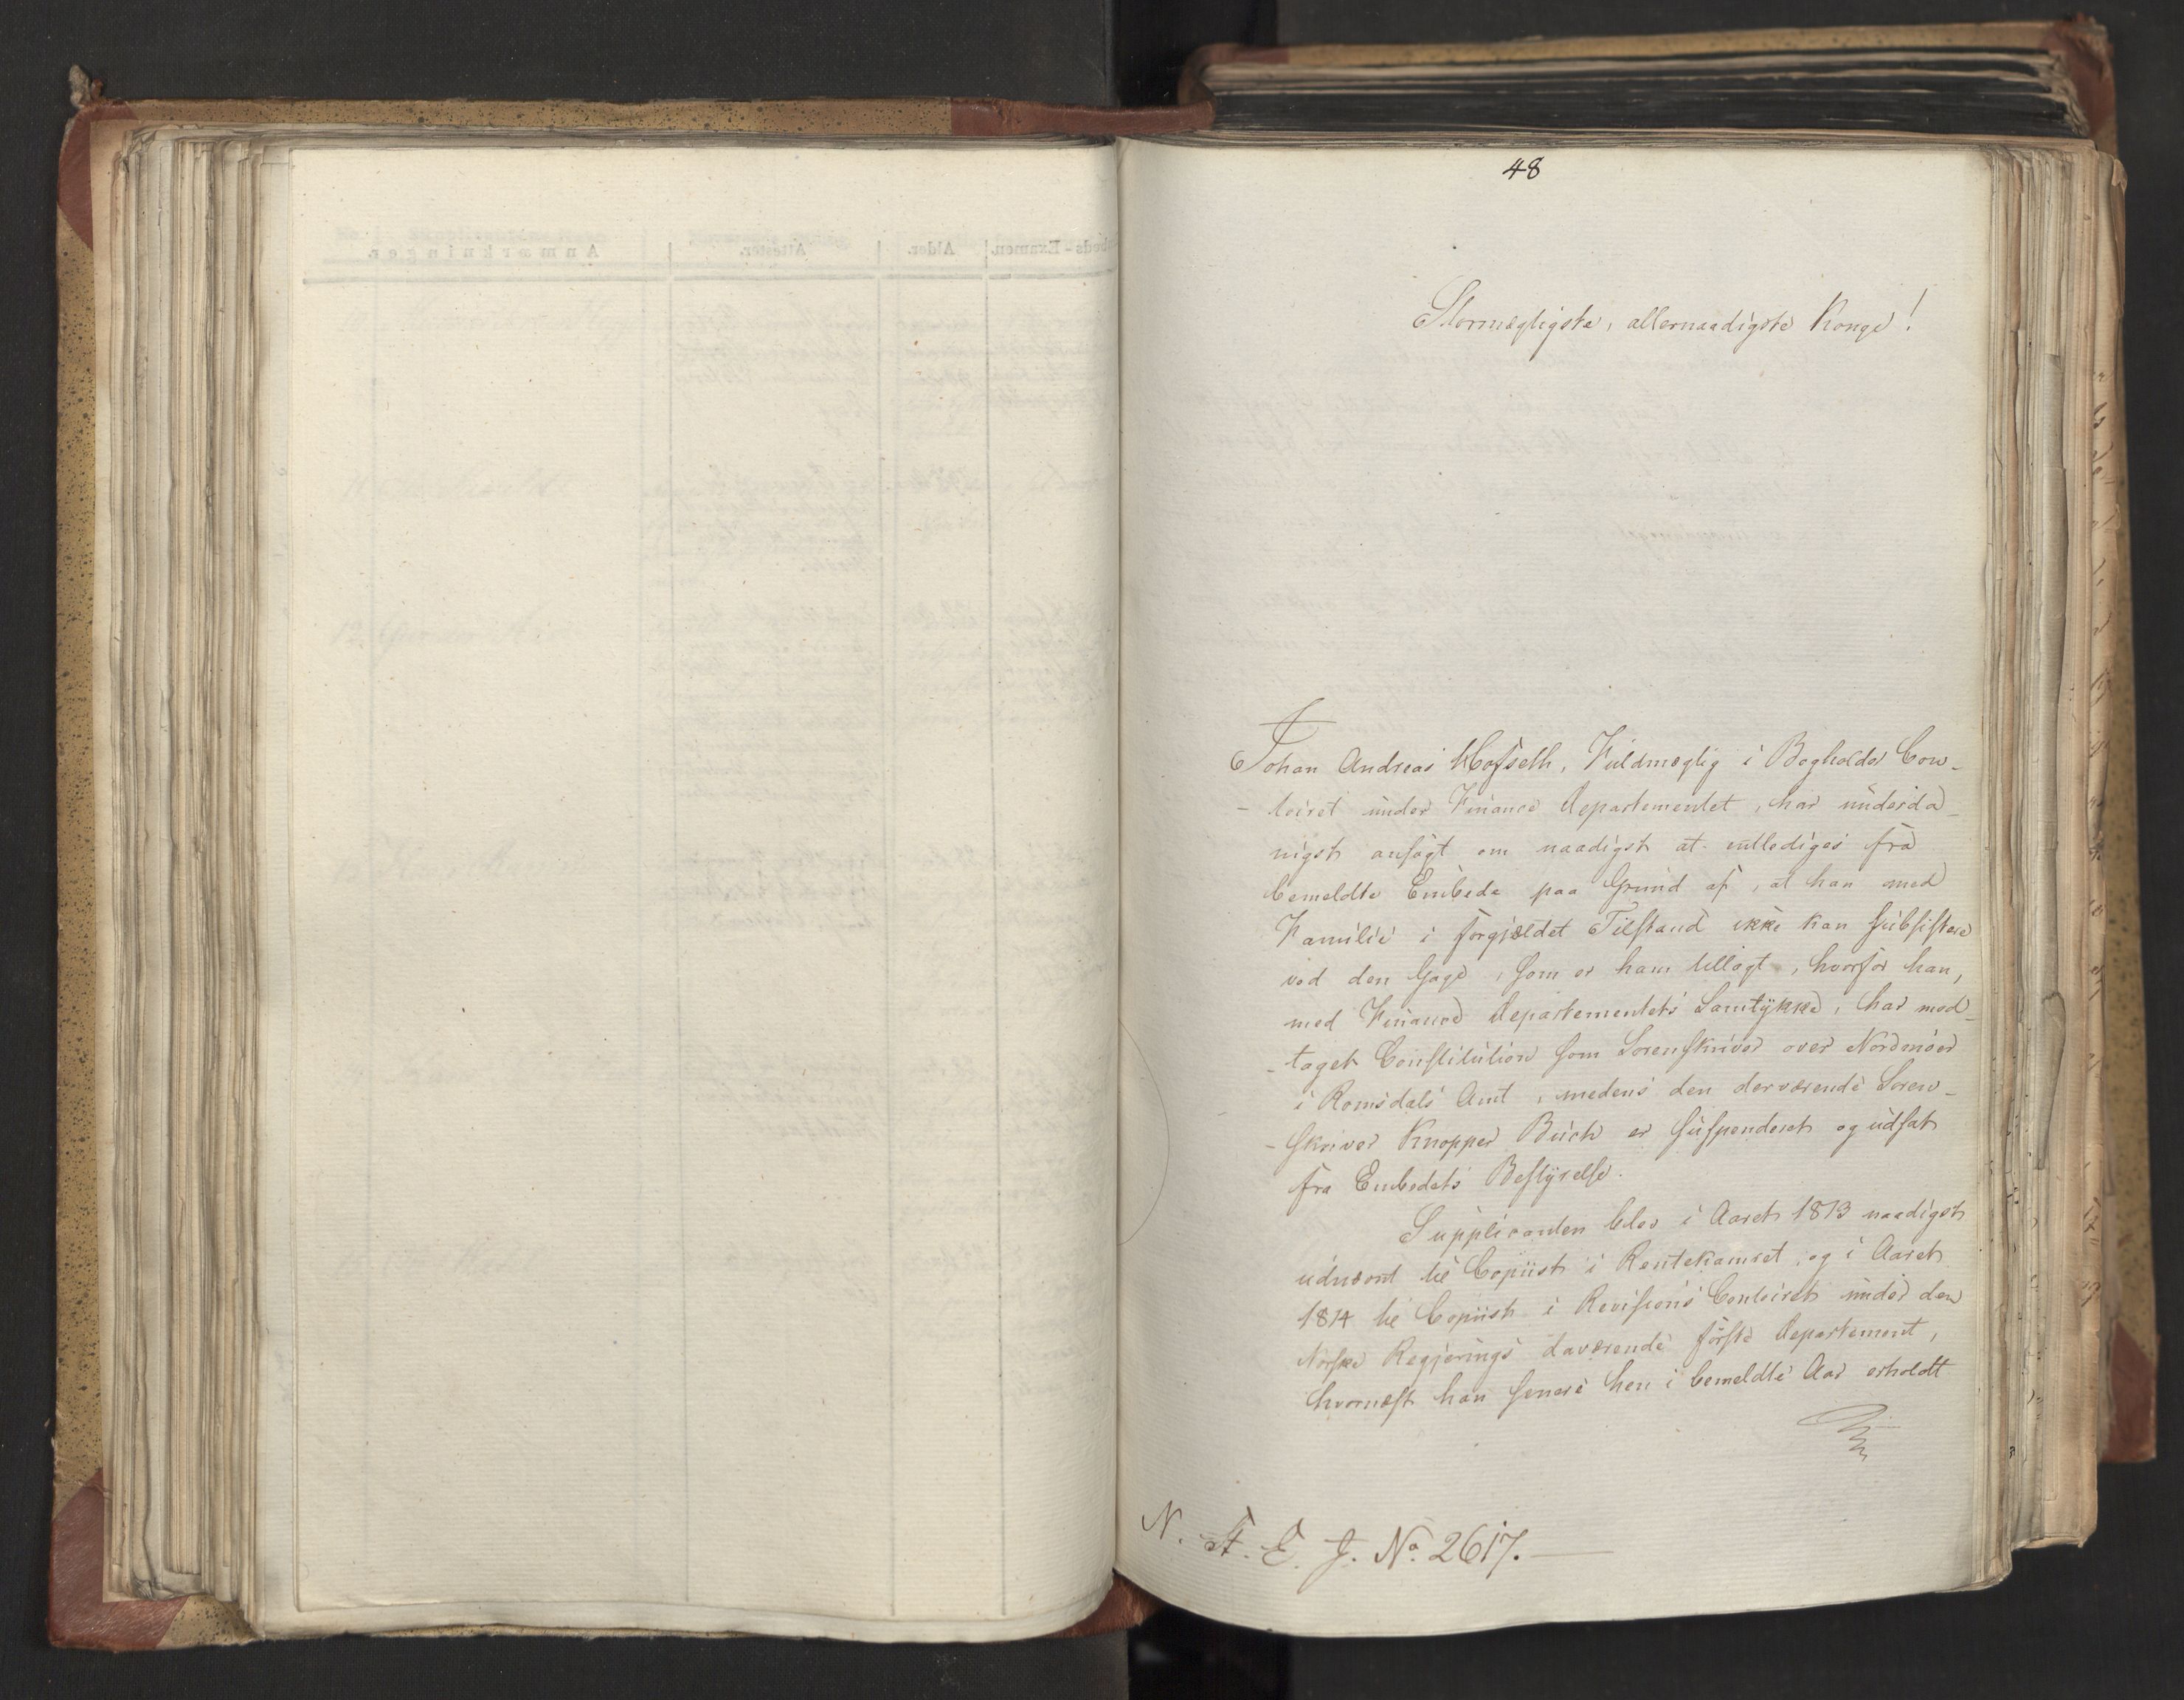 48
Stormægtigste, allernaadigste Konge!
Johan Andreas Hofseth, Fuldmægtig i Bogholder Con-
-toiret under Finance Departementet, har underda-
nigst ansøgt om naadigst at entlediges fra
bemeldte Embede paa Grund af, at han med
Familie i forgjældet Tilstand ikke kan subsistere
ved den Gage, som er ham tillagt, hvorfor han,
med Finance Departementets Samtykke, har mod-
-taget Constitution som Sorenskriver over Nordmøer
i Romsdals Amt, medens den derværende Soren-
-skriver Knopper Buch er suspenderet og udsat
fra Embedets Bestyrelse.
Supplicanten blev i Aaret 1813 naadigst
udnævnt til Copiist i Rentekamret, og i Aaret
1814 til Copiist i Revisions Contoiret under den
Norske Regjerings daværende første Departement,
hvornæst han senere hen i bemeldte Aar erholdt
N. F. E. J. No. 2617.
Anmærkninger.
Attester.
Alder.
beds-Examen.